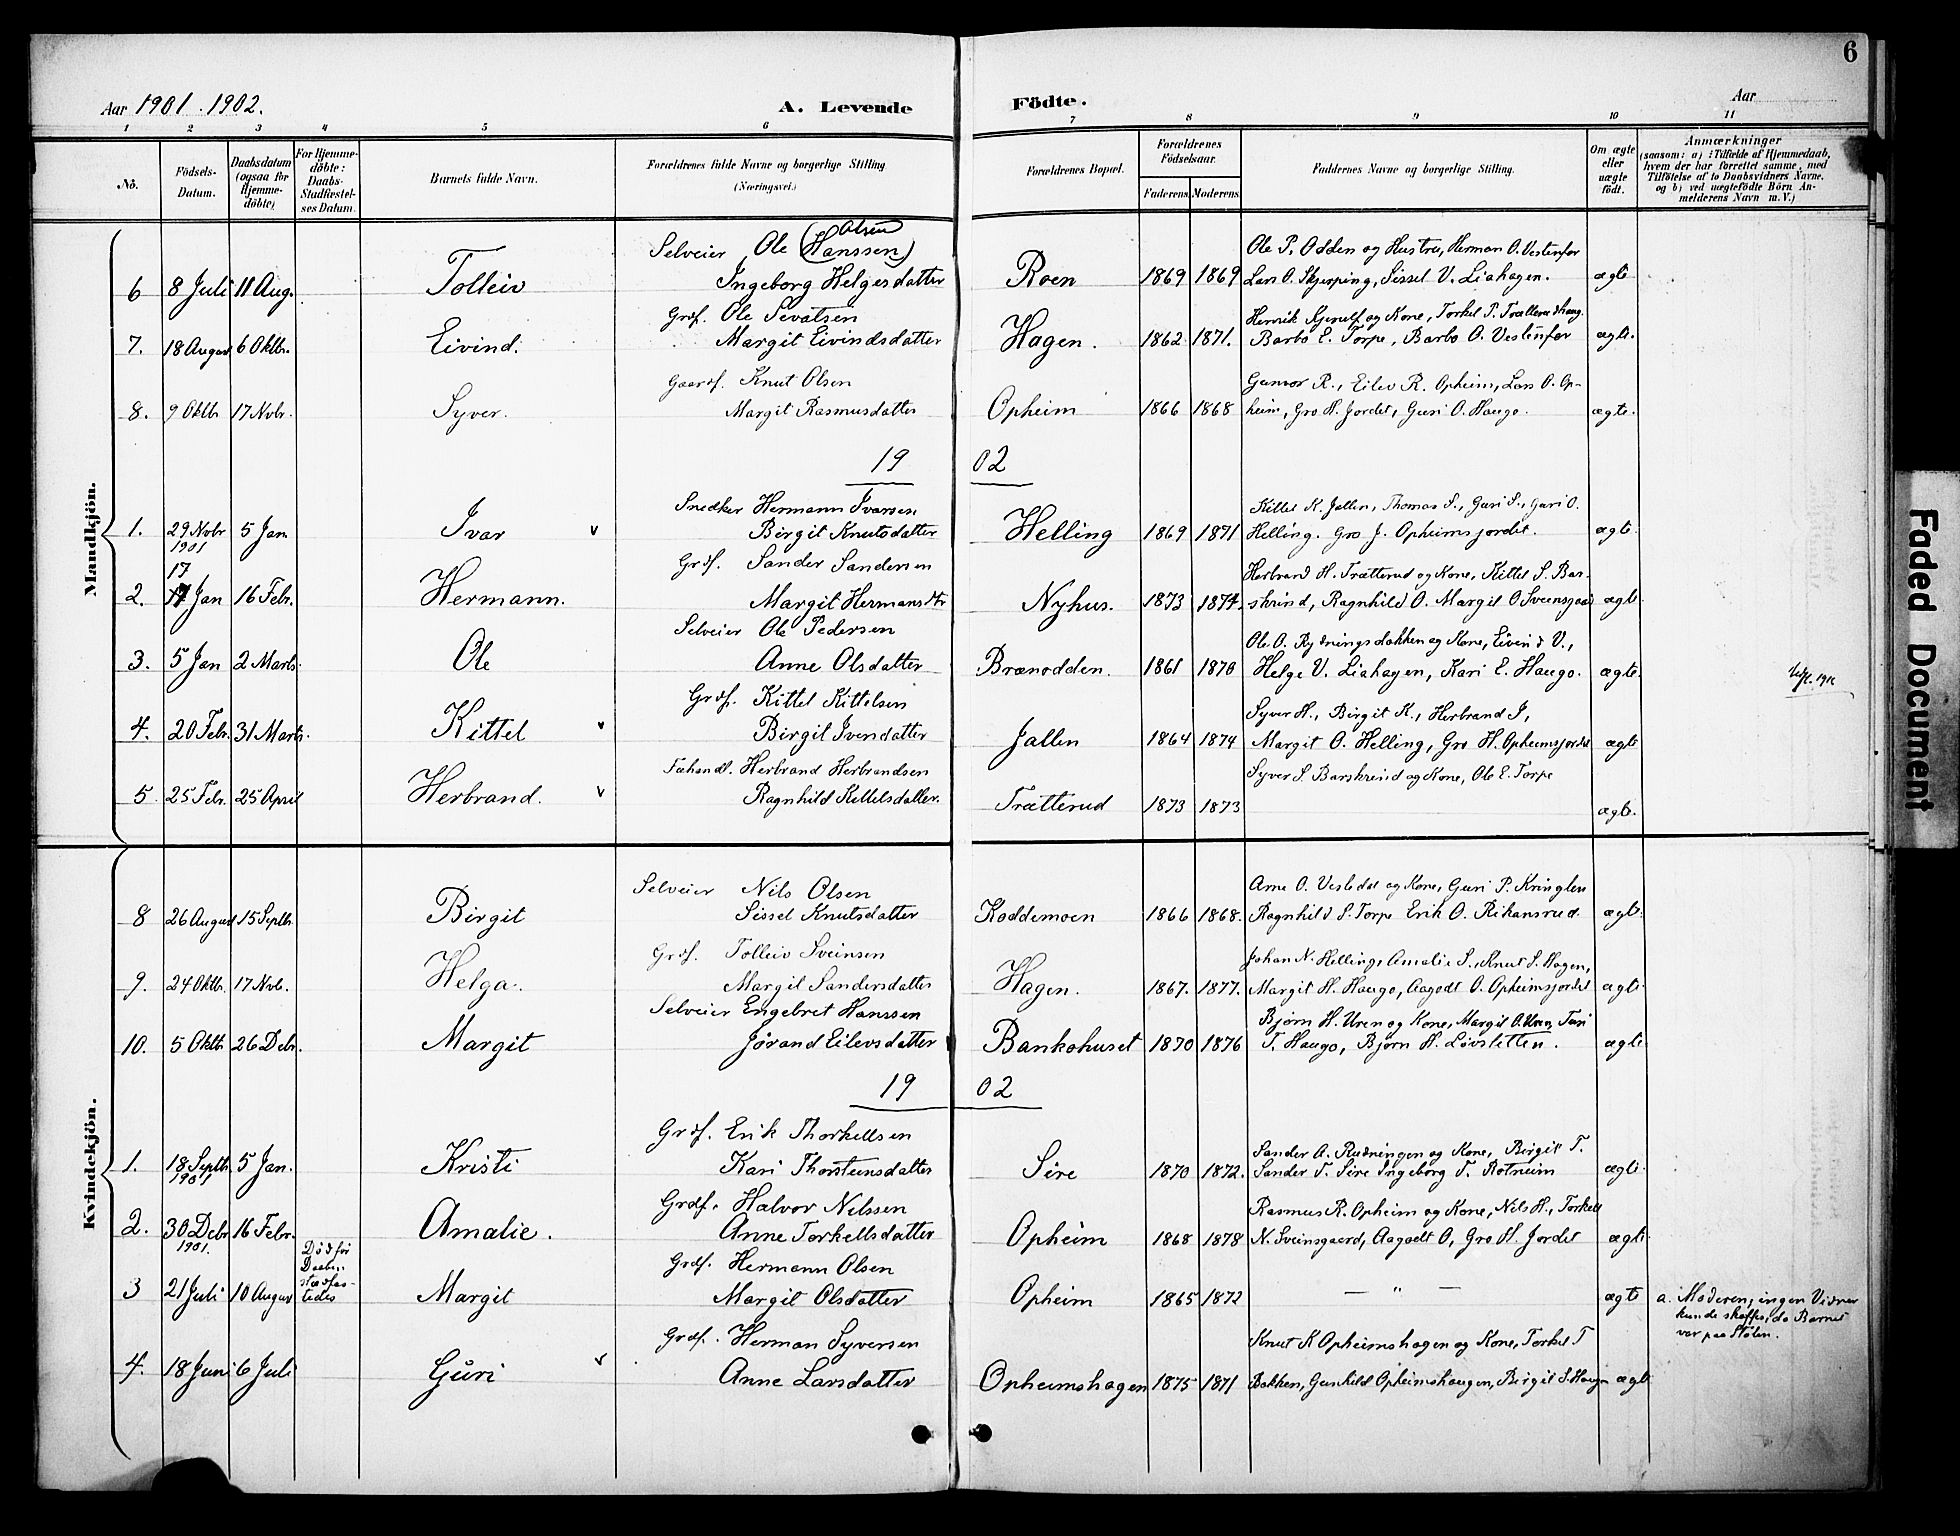 6
Aar 1901. 1902. A. Levende Födte. Aar
1 2 3 4 5 6 7 8 9 10 11
No.
Födsels-Datum.
Daabsdatum (ogsaa for Hjemme-döbte)
For Hjemme-döbte: Daabs-Stadfæstel-ses Datum.
Barnets fulde Navn.
Forældrenes fulde Navne og borgerlige Stilling (Næringsvei.)
Forældrenes Bopæl.
Forældrenes Födselsaar.
Faderens Moderens
Faddernes Navne og borgerlige Stilling.
Om ægte eller uægte födt.
Anmærkninger
(saasom: a) i Tilfælde af Hjemmedaab, hvem der har forrettet samme, med Tilföielse af to Daabsvidners Navne, og b) ved uægtefödte Börn An-melderens Navn m.V.)
Mandkjön.
Olsen
Selveier Ole (Hanssen) Ole P. Odden og Hustru, Herman O. Vestenfor
6 8 Juli 11 Aug. Tolleiv Ingeborg Helgesdatter Roen 1869 1869 Lars O. Skjerping, Sissel V. Liahagen. ægte
Grdf. Ole Sevatsen Henrik Gjenulf og Kone, Torkel P. Trætterudhaug.
7. 18 August 6 Oktbr. Eivind. Margit Eivindsdatter Hagen. 1862 1871. Barbo E. Torpe, Barbo O. Vestenfor ægte.
Gaardf. Knut Olsen Gunvor R., Eilev R. Opheim, Lars O. Op-
8. 9 Oktbr 17 Novbr. Syver. Margit Rasmusdatter Opheim 1866 1868 heim, Gro H. Jordet, Guri O. Haugo. ægte.
19 02
Snedker Hermann Ivarsen Kittel K. Jallen, Thomas S., Guri S., Guri O.
1. 29 Novbr 1901 5 Jan. Ivar v Birgit Knutsdatter Helling 1869 1871 Helling. Gro J. Opheimsjordet. ægte
17 Grdf. Sander Sandersen Herbrand H. Trætterud og Kone, Kittel S. Bar-
2. Jan 16 Febr. Hermann. Margit Hermansdtr Nyhus. 1873 1874. skrind, Ragnhild O. Margit O Sveinsgaard ægte
Selveier Ole Pedersen Ole O. Rydningsdokken og Kone, Eivind V.,
3. 5 Jan 2 Marts. Ole Anne Olsdatter Brænodden. 1861 1870 Helge V. Liahagen, Kari E. Haugo. ægte.
Grdf. Kittel Kittelsen Syver H., Birgit K., Herbrand I,
4. 20 Febr. 31 Marts. Kittel v Birgit Iversdatter Jallen 1864 1874 Margit O. Helling, Gro H. Opheimsjordet ægte
Fæhandl. Herbrand Herbrandsen Syver S. Barskrind og Kone, Ole E. Torpe
5 25 Febr. 25 April Herbrand. v Ragnhild Kittelsdatter. Trætterud 1873 1873 ægte.
Kvindekjön.
Selveier Nils Olsen Arne O. Vesledal og Kone, Guri P. Kringlen
8 26 August 15 Septbr. Birgit Sissel Knutsdatter Koddemoen 1866 1868. Ragnhild S. Torpe Erik O. Rikansrud. ægte.
Grdf. Tolleiv Sveinsen Johan N. Helling, Amalie S., Knut S. Hagen,
9. 24 Oktbr. 17 Novb. Helga. Margit Sandersdatter Hagen. 1867. 1877. Margit H. Haugo, Aagodt O. Opheimsjordet ægte
Selveier Engebret Hanssen Bjørn H. Uren og Kone, Margit O. Uren, Turi
10. 5 Oktb. 26 Debr. Margit Jørand Eilevsdatter Bankohuset 1870 1876 T. Haugo, Bjørn H. Løvsletten. ægte
19 02
Grdf. Erik Thorkellsen Sander A. Rudningen og Kone, Birgit T.
1. 18 Septb. 1901 5 Jan. Kristi Kari Thorsteinsdatter Sire 1870 1872. Sander T. Sire Ingeborg T. Rotneim ægte.
Grdf. Halvor Nilssen Rasmus R. Opheim og Kone, Nils H., Torkell
2. 30 Debr 1901. 16 Febr. Amalie. Anne Torkellsdatter Opheim 1868 1878 N. Sveinsgaard, Aagodt O, Gro H. Jordet ægte
Død før Daaben stadfæs-tedes Grdf. Hermann Olsen
3 21 Juli 10 August Margit Margit Olsdatter Opheim 1865 1872 — " — ægte a. Moderen, ingen Vidner
kunde skaffes, da Barnet
var paa Stølen.
Grdf. Herman Syversen Knut K Opheimshagen og Kone, Torkel T
4. 18 Juni 6 Juli Guri v Anne Larsdatter Opheimshagen 1875 1871 Bakken, Gunhild Opheimshaugen, Birgit S. Haugen ægte
Faded Document